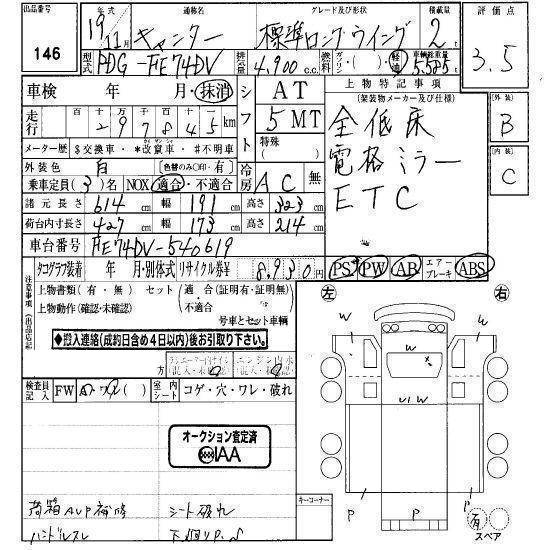 出品番号 146
年式 19年11月 通称名 キャンター グレード及び形状 標準ロング ウイング 積載量 2t 評価点 3.5
型式 PDG-FE74DV 排気量 4,900c.c. 燃料 ガソリン・( )・軽油 車輌総重量 5585
車検 年 月・抹消
走行 百 十 万 千 百 十 km
297845
メーター歴 $交換車・*改竄車・#不明車
外装色 白 (色替のみ○印・有)
乗車定員(3)名 NOX 適合・不適合
シフト AT
5 MT
特殊( )
冷房 AC 無
諸元長さ 614cm 幅 191cm 高さ 323cm
荷台内寸長さ 427cm 幅 173cm 高さ 214cm
車台番号 FE74DV-540619
上物特記事項
(架装物メーカー及び仕様)
全低床
電格ミラー
ETC
[外装] B
[内装] C
タコグラフ装着 年 月・別体式 リサイクル券¥ 8,930円 PS PW AB エアーブレーキ ABS
注意事項(出品店記
上物書類(有・無) セット(適 合(証明有・証明無)
上物動作(確認・未確認) ・不適合
号車とセット車輌
◆搬入連絡(成約日含め4日以内)後お引取り下さい。
検査員記入 FW 室内シート コゲ・穴・ワレ・破れ
オークション査定済
IAA
荷箱AUP補修 シート破れ
ハンドルスレ
キーコーナー
左 右
W W
U.W
P P
スペア 有